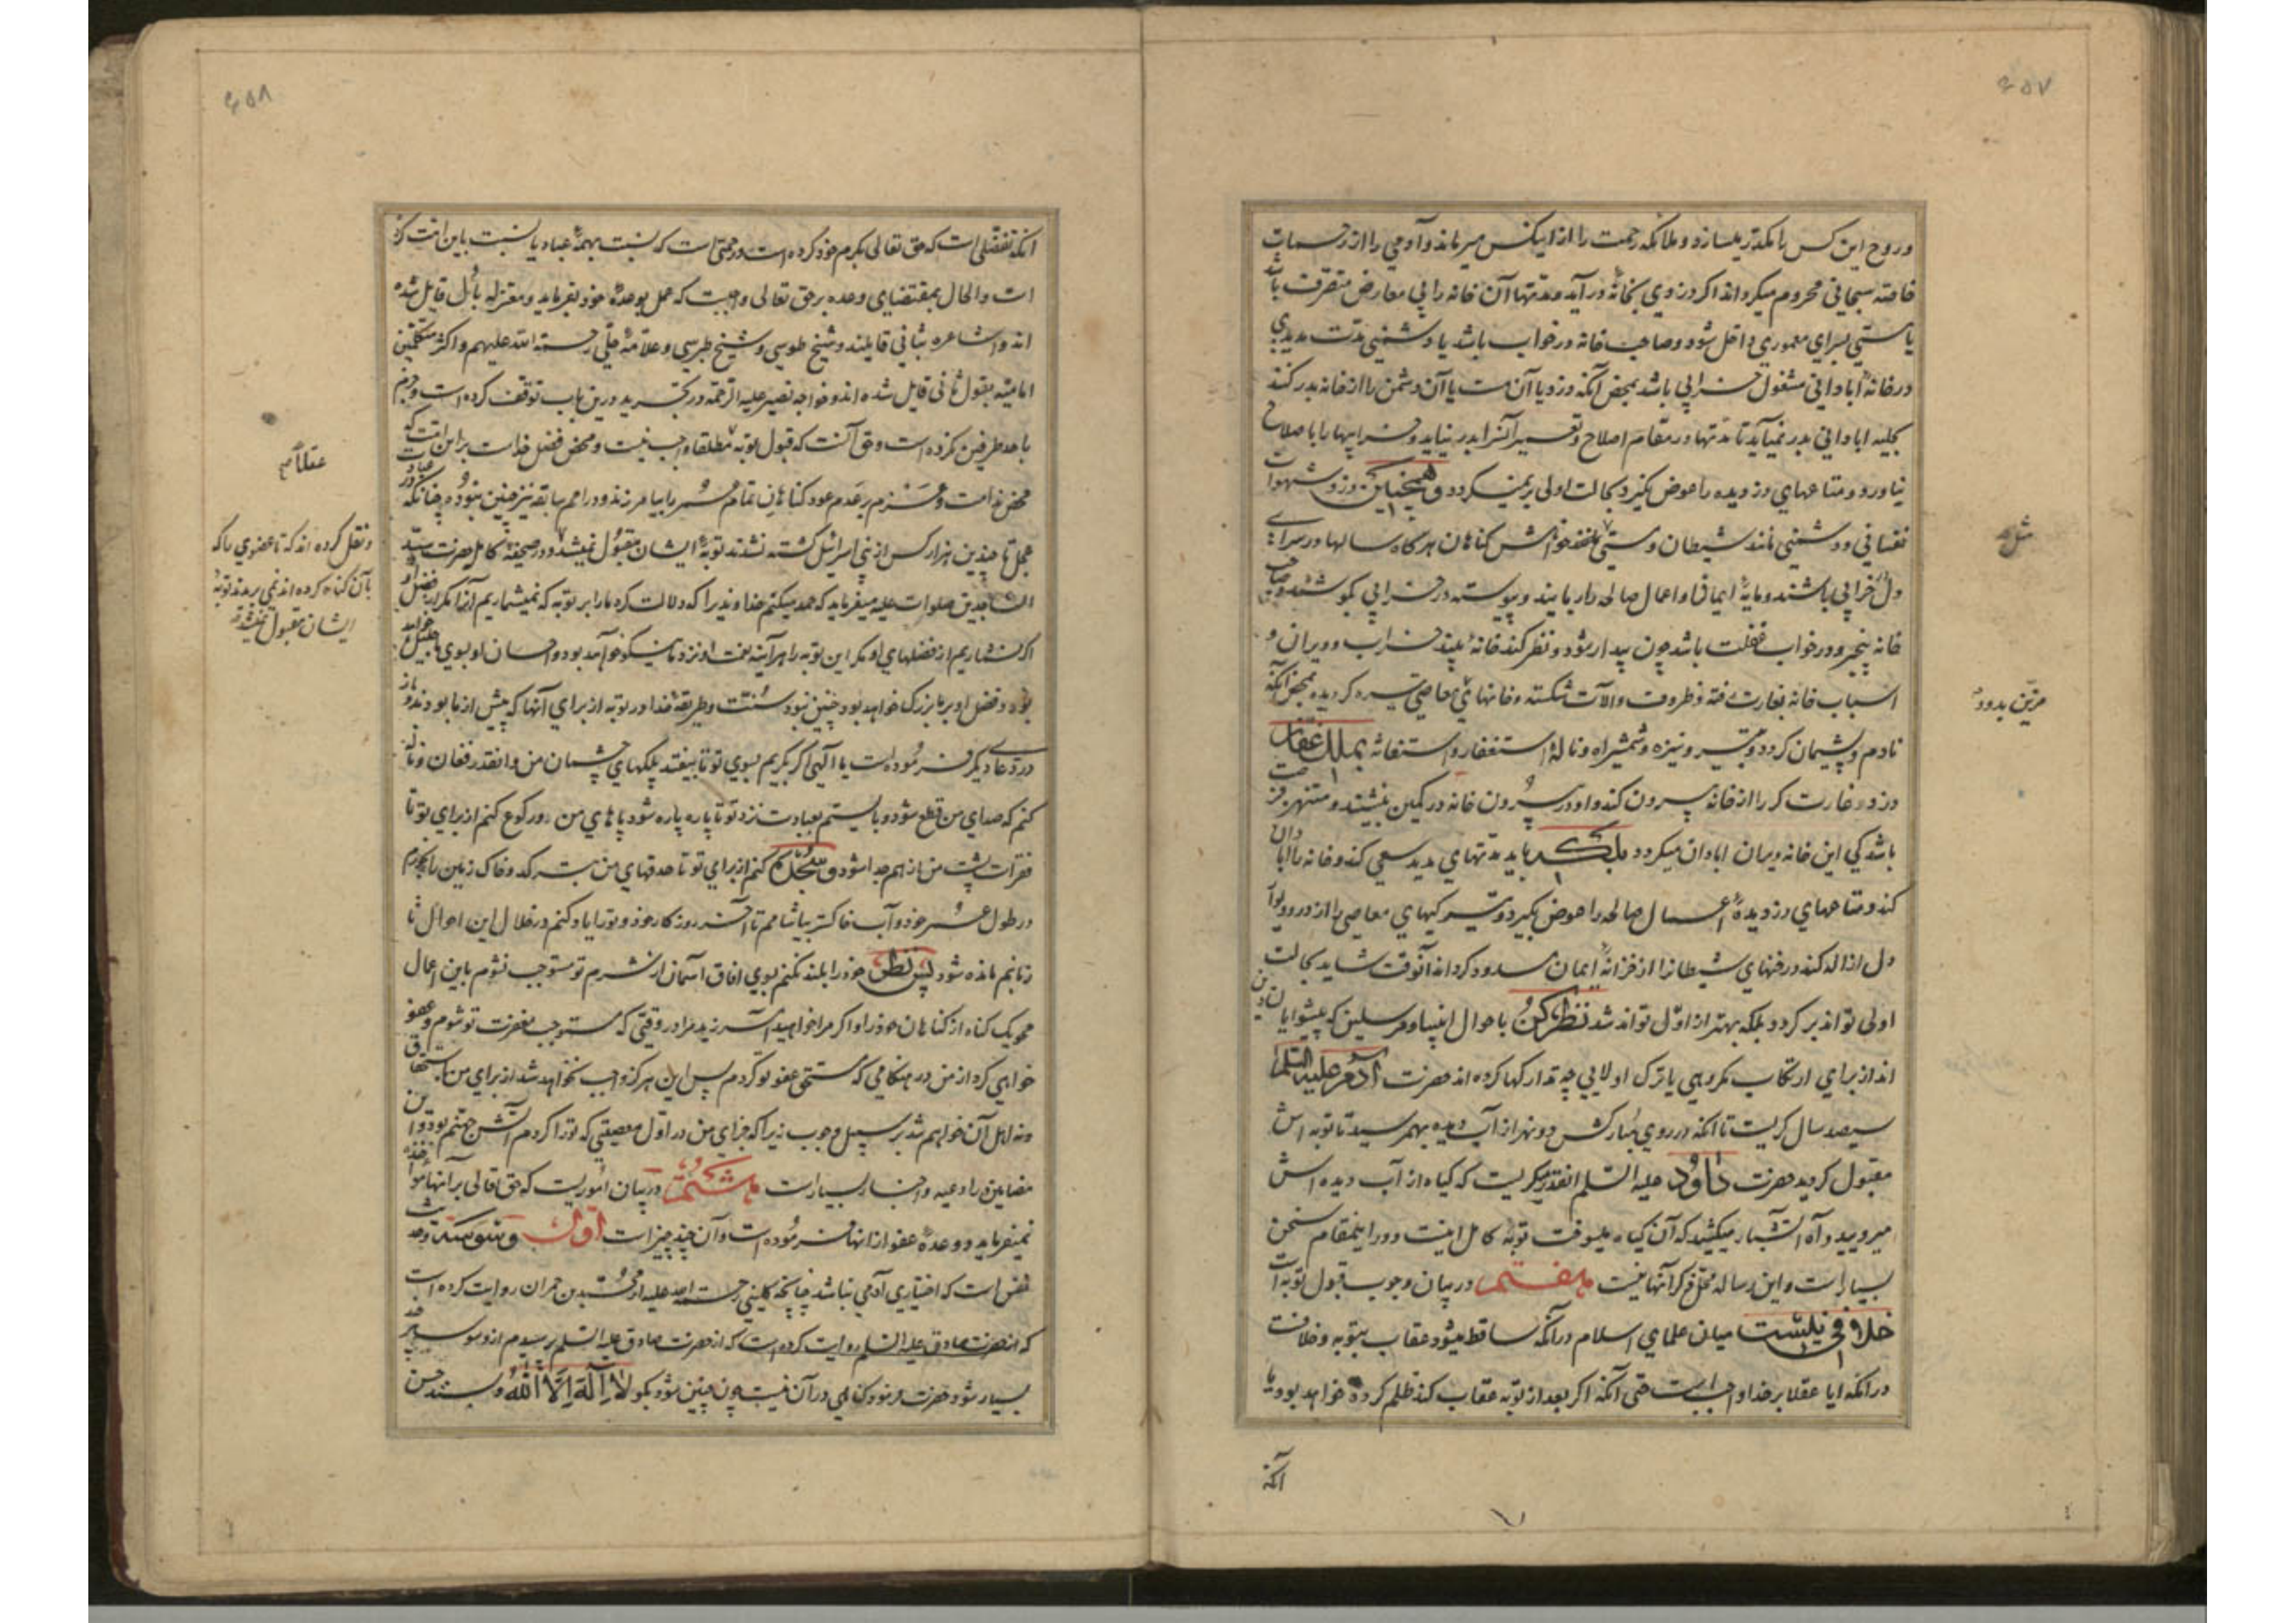 ۶۵۷
و روح این کس را مکدر میسازد و ملائکه رحمت را از اینکس میرماند و آدمی را از رحمات
خاصهٔ سبحانی محروم میگرداند اگر دزدی بخانهٔ درآید و مدتها آن خانه را بی معارض متصرف باشد
یا مستی بسرای معموری داخل شود و صاحب خانه در خواب باشد یا دشمنی مدت مدیدی
در خانهٔ آبادانی مشغول خرابی باشد بمحض آنکه دزد یا آن مست یا آن دشمن را از خانه بدر کنند
بحلیه آبادانی بدر نمیآید تا مدتها در مقام اصلاح و تعمیر آن در نیاید و خرابیها را باصلاح
نیاورد و متاعهای دزدیده را عوض نگیرد بحالت اولی بر نمیگردد و همچنین دزد شهوات
نفسانی و دشمنی مانند شیطان و مستی خواهش گناهان هرگاه سالها در سرای
مثل
دل خرابی باشند و مایهٔ ایمان و اعمال صالحه را ربایند و پیوسته در خرابی کوشند و صاحب
خانه بیخبر و در خواب غفلت باشد چون بیدار شود و نظر کند خانهٔ بیند خراب و ویران و
اسباب خانه بغارت رفته و ظروف و آلات شکسته و خانهای معاصی تیره گردیده بمحض آنکه
نادم و پشیمان گردد و بتیر و نیزه و شمشیر آه و نالهٔ استغفار و استغاثه بملک غفار
دزد و غارت کر را از خانه بیرون کند و او در بیرون خانه در کمین بنشیند و منتهز فرصت
باشد کی این خانه ویران آبادان میگردد بلکه باید مدتهای مدید سعی کند و خانه را آبادان
کند و متاعهای دزدیدهٔ اعمال صالحه را عوض بگیرد و تیرگیهای معاصی را از در و دیوار
دل ازاله کند و رخنهای شیطانرا از خزانهٔ ایمان مسدود گرداند آنوقت شاید بحالت
اولی تواند برگردد بلکه بهتر از اول تواند شد نظر کن باحوال انبیا و مرسلین که پیشوایان دین
اند از برای ارتکاب مکروهی یا ترک اولایی چه تدارکها کرده اند حضرت آدم علیه السلام
سیصد سال گریست تا آنکه در روی مبارکش دو نهر از آب دیده بهم رسید تا توبه اش
مقبول گردید حضرت داود علیه السلام آنقدر میگریست که گیاه از آب دیده اش
میرویید و آه آتشبار میکشید که آن گیاه میسوخت توبهٔ کامل اینست و در اینمقام سخن
بسیار است و این رساله محل ذکر آنها نیست هفتم در بیان وجوب قبول توبه است
خلافی نیست میان علمای اسلام در آنکه ساقط میشود عقاب بتوبه و خلافست
در آنکه آیا عقلا بر خدا واجبست حتی آنکه اگر بعد از توبه عقاب کند ظلم کرده خواهد بود یا
آنکه
۶۵۸
آنکه تفضلی است که حق تعالی بکرم خود کرده است و رحمتی است که نسبت بهمهٔ عباد یا نسبت باین امت کرده
است و الحال بمقتضای وعده بر حق تعالی واجبست که عمل بوعدهٔ خود بفرماید و معتزله باول قایل شده
اند و اشاعره بثانی قایلند و شیخ طوسی و شیخ طبرسی و علامهٔ حلی رحمة الله علیهم و اکثر متکلمین
امامیه بقول ثانی قایل شده اند و خواجه نصیر علیه الرحمه در تجرید درین باب توقف کرده است و جزم
باحد طرفین نکرده است و حق آنست که قبول توبه مطلقا واجب نیست و محض فضل خداست بر این امت که
عقلا صح
محض ندامت و عزم بر عدم عود گناهان تمام عمر را بیامرزند و در امم سابقه نیز چنین نبوده چنانکه در عبادت
عجل تا چندین هزار کس از بنی اسرائیل کشته نشدند توبهٔ ایشان مقبول نمیشد و در صحیفهٔ کامله حضرت سید
و نقل کرده اند که تا عضوی را که
بآن گناه کرده اند نمی بریدند توبهٔ
ایشان مقبول نمیشد
الساجدین صلوات علیه میفرماید که حمد میکنم خداوندیرا که دلالت کرد ما را بر توبه که نمیشماریم آنرا مگر از فضل او
اگر نشماریم از فضلهای او مگر این توبه را هرآینه نعمت او نزد ما نیکو خواهد بود و احسان او بسوی ما جلیل خواهد
بود و فضل او بر ما بزرگ خواهد بود چنین نبود سنت و طریقهٔ خدا در توبه از برای آنها که پیش از ما بودند و باز
در دعای دیگر فرموده است یا الهی اگر بگریم بسوی تو تا بیفتد پلکهای چشمان من و آنقدر فغان و ناله
کنم که صدای من قطع شود و بایستم بعبادت نزد تو تا پاره پاره شود پاهای من و رکوع کنم از برای تو تا
فقرات پشت من از هم جدا شود و سجده کنم از برای تو تا حدقهای من بترکد و خاک زمین را بخورم
در طول عمر خود و آب خاکستر بیاشامم تا آخر روزگار خود و تو را یاد کنم در خلال این احوال تا
زبانم مانده شود پس نظر خود را بلند نکنم بسوی آفاق آسمان از شرم تو مستوجب نشوم باین اعمال
محو یک گناه از گناهان خود را و اگر مرا خواهی آمرزید مرا در وقتی که مستوجب مغفرت تو شوم و عفو
خواهی کرد از من در هنگامی که مستحق عفو تو گردم پس این هرگز واجب نخواهد شد از برای من باستحقاق
و نه اهل آن خواهم شد بر سبیل وجوب زیرا که جزای من در اول معصیتی که تو را کردم آتش جهنم بود و این
مضامین در ادعیه و اخبار بسیار است هشتم در بیان اموریست که حق تعالی بر آنها مؤاخذه
نمیفرماید و وعدهٔ عفو از آنها فرموده است و آن چند چیز است اول وسوسه و حدیث
نفس است که اختیاری آدمی نباشد چنانچه کلینی رحمة الله علیه از محمد بن حمران روایت کرده است
که از حضرت صادق علیه السلام روایت کرده است که از حضرت صادق علیه السلام پرسیدم از وسوسه هر چند
بسیار شود حضرت فرمود گناهی در آن نیست چون چنین شود بگو لا اله الا الله و بسند حسن